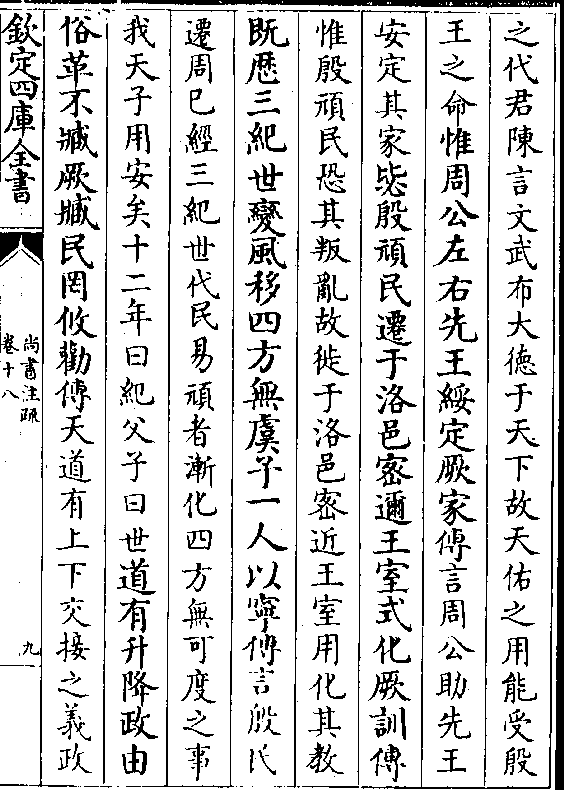 之代君陳言文武布大德于天下故天佑之用能受殷
王之命惟周公左右先王綏定厥家傳言周公助先王
安定其家毖殷頑民遷于洛邑密邇王室式化厥訓傳
惟殷頑民恐其叛亂故徙于洛邑密近王室用化其教
既歴三紀世變風移四方無虞予一人以寧傳言殷民
遷周已經三紀世代民易頑者漸化四方無可度之事
我天子用安矣十二年曰紀父子曰世道有升降政由
俗革不臧厥臧民罔攸勸傳天道有上下交接之義政
欽定四庫全書
尚書注疏
卷十八
九